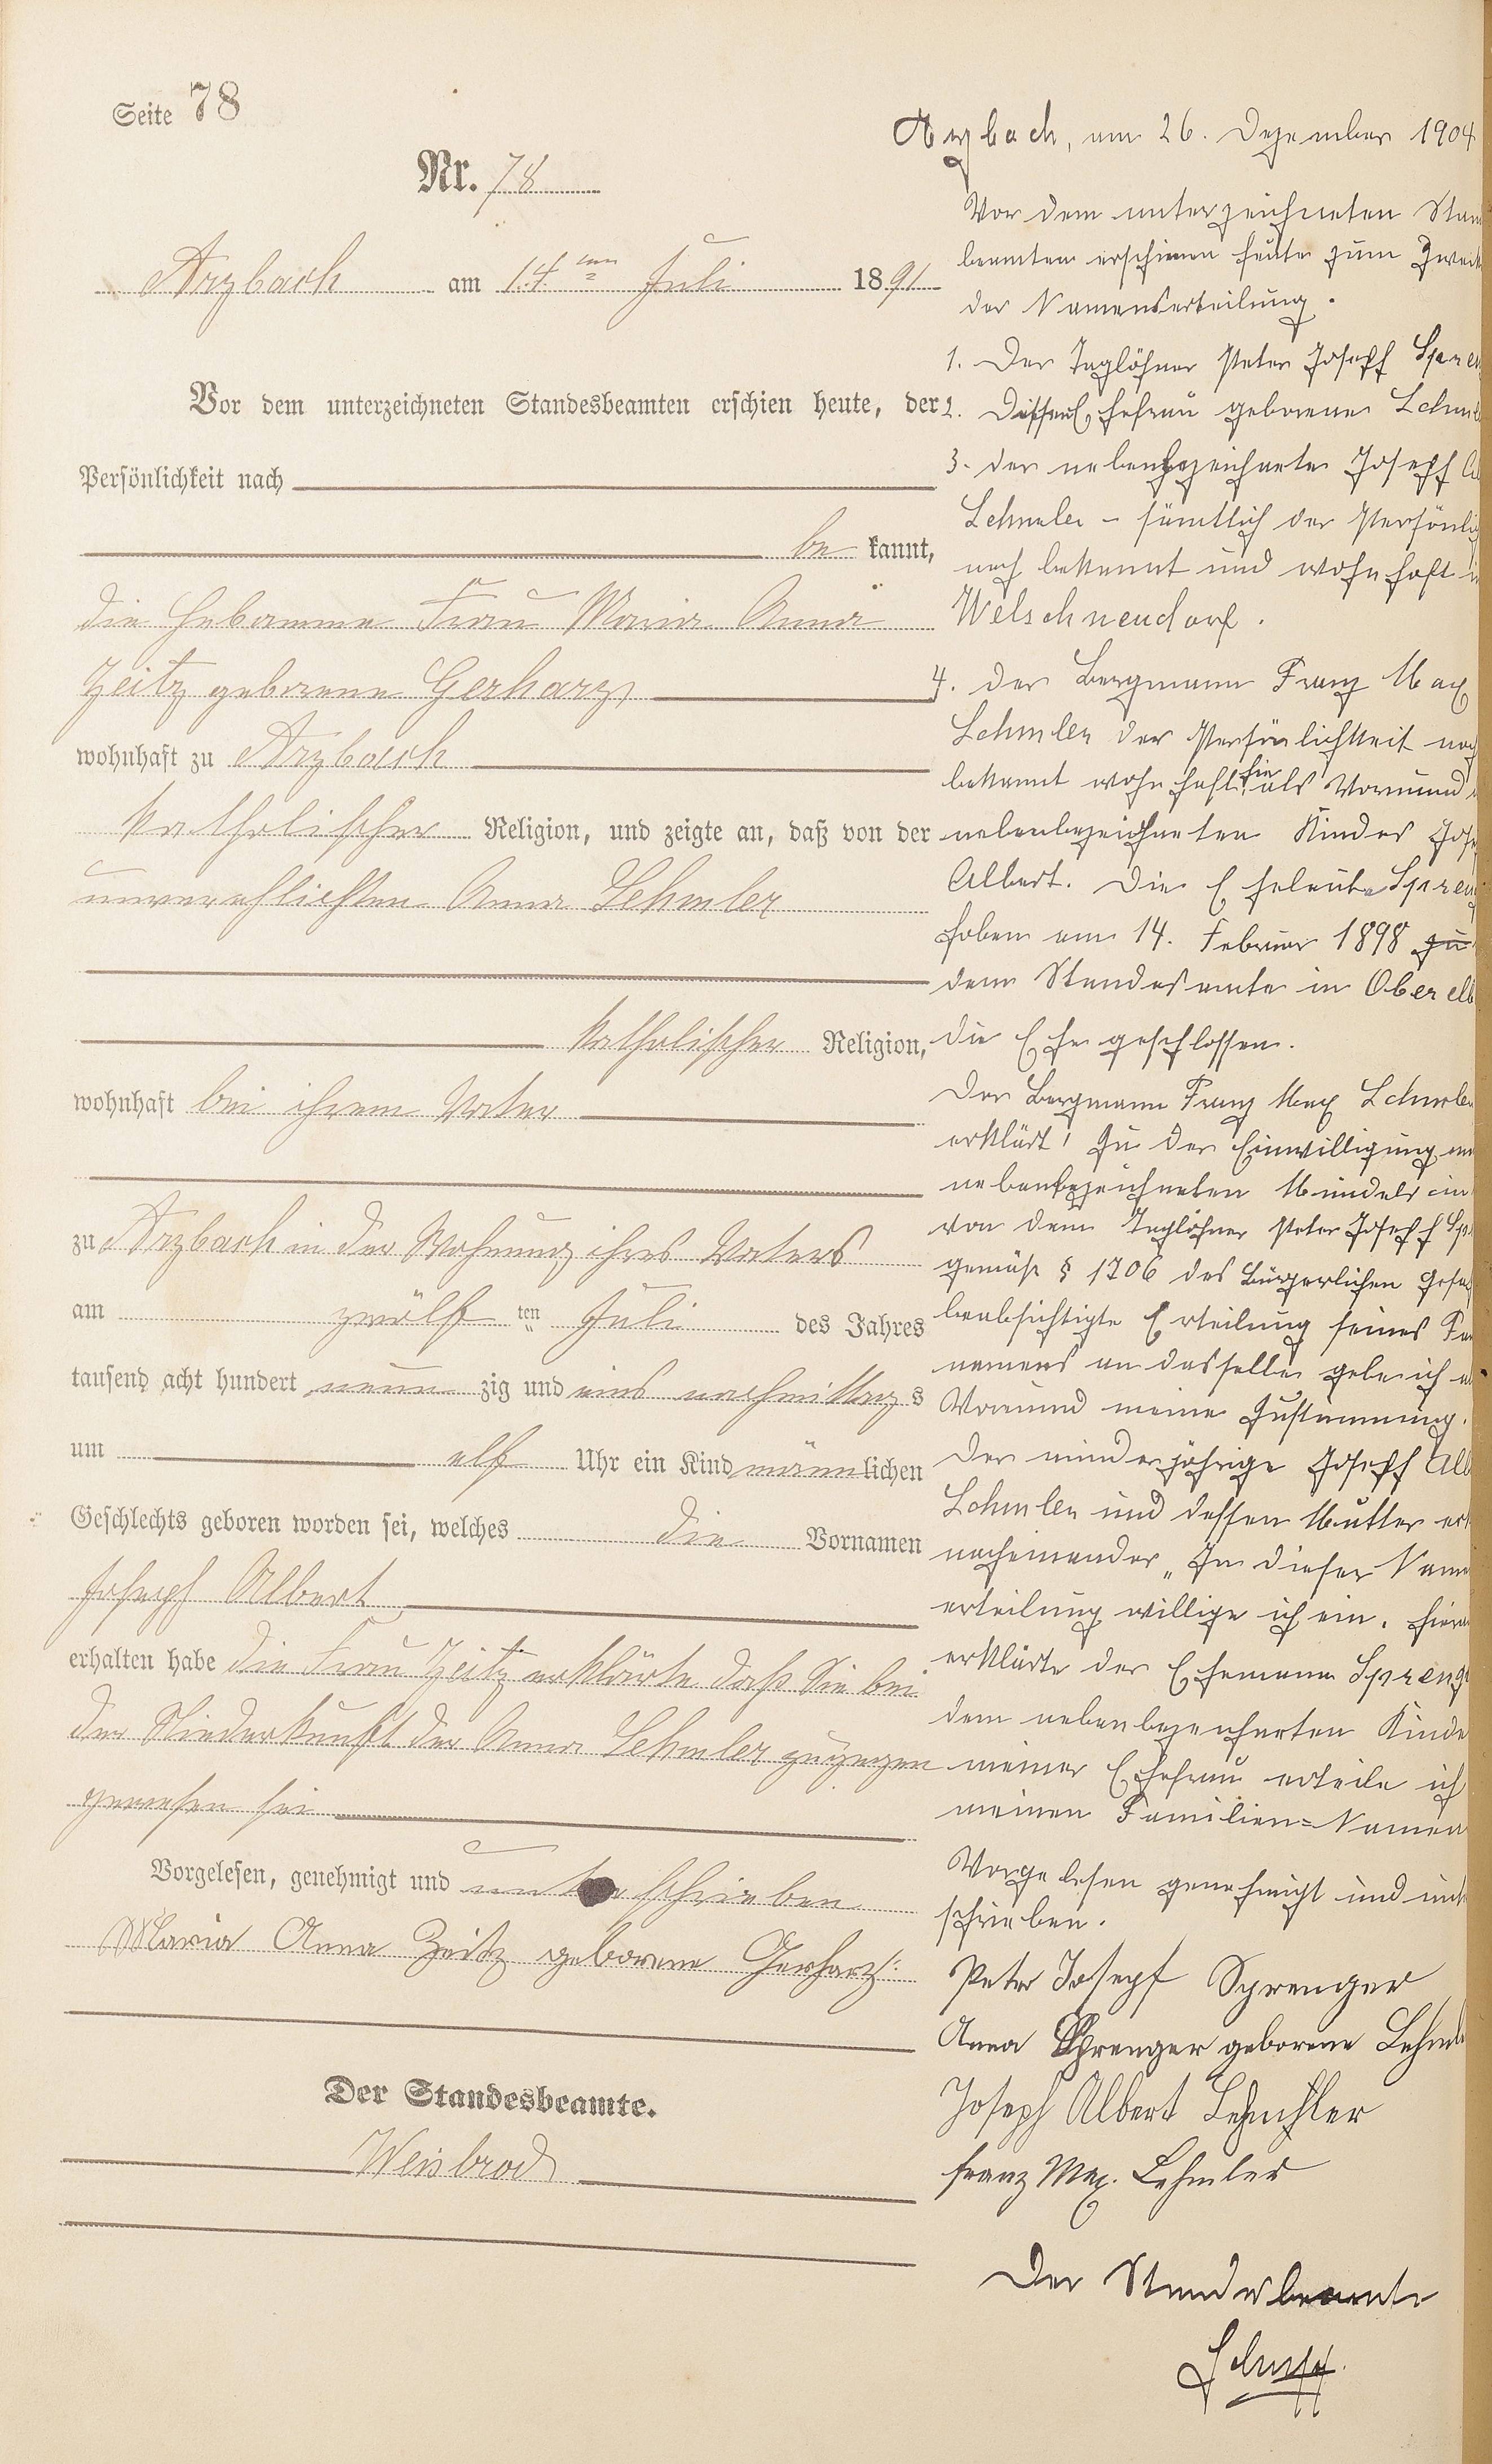 Seite 78
Nr. 78
Arzbach am 14ten Juli 1891
Vor dem unterzeichneten Standesbeamten erschien heute, der
Persönlichkeit nach
be kannt,
die Hebamme Frau Maria Anna
Zeitz geborene Gerharz
wohnhaft zu Arzbach
katholischer Religion, und zeigte an, daß von der
unverehlichten Anna Lehmler
katholischer Religion,
wohnhaft bei ihrem Vater
zu Arzbach in der Wohnung ihres Vaters
am zwölf ten Juli des Jahres
tausend acht hundert neun zig und eins nachmittags
um elf Uhr ein Kind männlichen
Geschlechts geboren worden sei, welches die Vornamen
Joseph Albert
erhalten habe die Frau Zeitz erklärte daß Sie bei
der Niederkunft der Anna Lehmler zugegen
gewesen sei
Vorgelesen, genehmigt und unterschrieben
Maria Anna Zeitz geborene Gerharz
Der Standesbeamte.
Weisbrod
Arzbach, am 26. Dezember 1904
Vor dem unterzeichneten Stan
beamten erschienen heute zum Zweck
der Namenserteilung.
1. Der Taglöhner Peter Joseph Spren
2. Dessen Ehefrau geborene Lehml
3. der nebenbezeichnete Joseph Al
Lehmler - sämtlich der Persönlich
nach bekannt und wohnhaft in
Welschneudorf.
4. der Bergmann Franz Max
Lehmler der Persönlichkeit nach
bekannt wohnhaft hier als Vormund
nebenbezeichneten Kindes Jose
Albert. Die Eheleute Spreng
haben am 14. Februar 1898 zu
dem Standesamte in Oberelb
die Ehe geschlossen.
Der Bergmann Franz Max Lehmler
erklärt! Zu der Einwilligung
nebenbezeichneten Mündels in
von dem Taglöhner Peter Joseph Sp
gemäß § 1706 des Bürgerlichen Geset
beabsichtigte Erteilung seines Fa
namens an dasselbe gebe ich
Vormund meine Zustimmung.
Der minderjährige Joseph Alb
Lehmler und dessen Mutter erk
nacheinander „In dieser Namen
erteilung willige ich ein. Hiera
erklärte der Ehemann Spreng
dem nebenbezeichneten Kinde
meiner Ehefrau erteile ich
meinen Familien=Namen
Vorgelesen genehmigt und unt
schrieben.
Peter Josepf Sprenger
Anna Sprenger geborene Lehml
Joseph Albert Lehmler
Franz Max. Lehmler
Der Standesbeamte